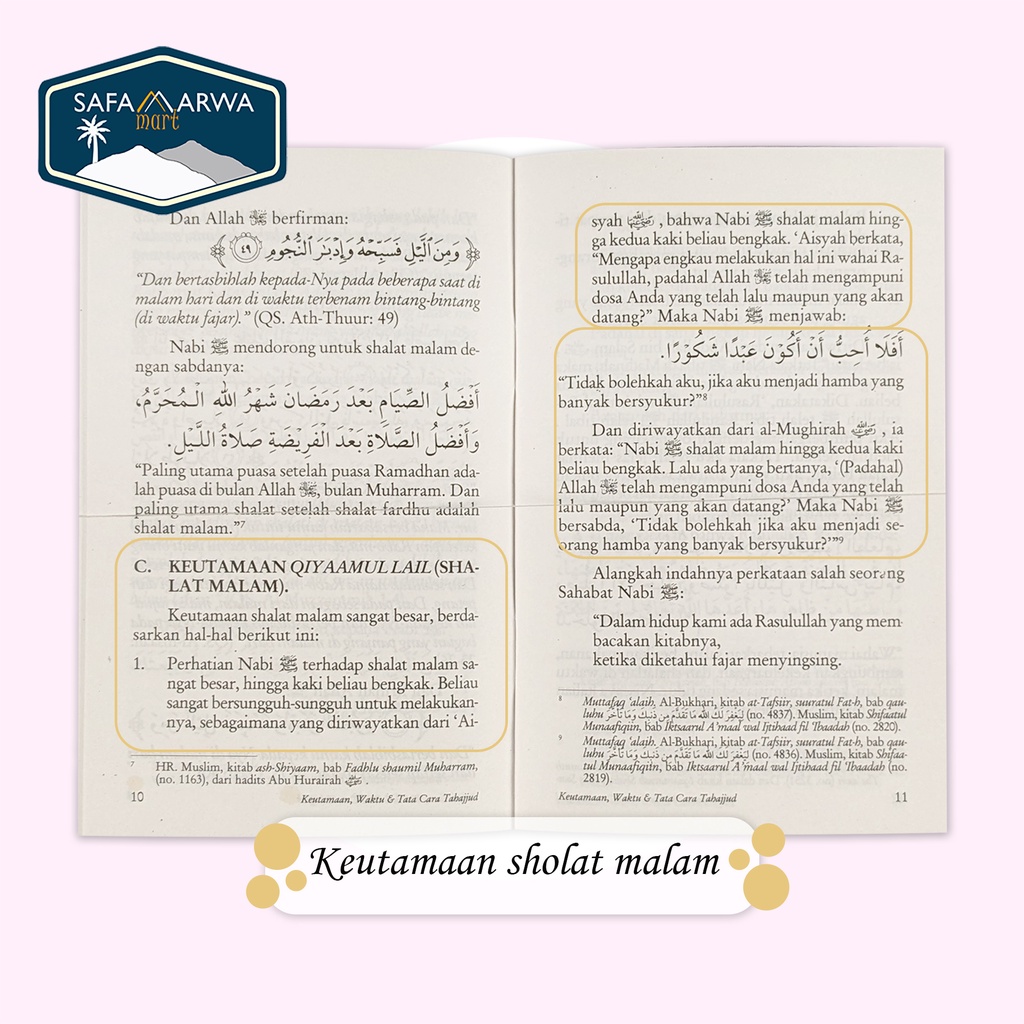 SAFA MARWA
mart
Dan Allah ﷻ berfirman:
﴿ وَمِنَ ٱلَّيْلِ فَسَبِّحْهُ وَإِدْبَٰرَ ٱلنُّجُومِ ٤٩ ﴾
“Dan bertasbihlah kepada-Nya pada beberapa saat di
malam hari dan di waktu terbenam bintang-bintang
(di waktu fajar).” (QS. Ath-Thuur: 49)
Nabi ﷺ mendorong untuk shalat malam de-
ngan sabdanya:
أَفْضَلُ الصِّيَامِ بَعْدَ رَمَضَانَ شَهْرُ اللهِ الْمُحَرَّمُ،
وَأَفْضَلُ الصَّلَاةِ بَعْدَ الْفَرِيْضَةِ صَلَاةُ اللَّيْلِ.
“Paling utama puasa setelah puasa Ramadhan ada-
lah puasa di bulan Allah ﷻ, bulan Muharram. Dan
paling utama shalat setelah shalat fardhu adalah
shalat malam.”7
C. KEUTAMAAN QIYAAMUL LAIL (SHA-
LAT MALAM).
Keutamaan shalat malam sangat besar, berda-
sarkan hal-hal berikut ini:
1. Perhatian Nabi ﷺ terhadap shalat malam sa-
ngat besar, hingga kaki beliau bengkak. Beliau
sangat bersungguh-sungguh untuk melakukan-
nya, sebagaimana yang diriwayatkan dari ‘Ai-
7 HR. Muslim, kitab ash-Shiyaam, bab Fadhlu shaumil Muharram,
(no. 1163), dari hadits Abu Hurairah
10 Keutamaan, Waktu & Tata Cara Tahajjud
syah , bahwa Nabi ﷺ shalat malam hing-
ga kedua kaki beliau bengkak. ‘Aisyah berkata,
“Mengapa engkau melakukan hal ini wahai Ra-
sulullah, padahal Allah ﷻ telah mengampuni
dosa Anda yang telah lalu maupun yang akan
datang?” Maka Nabi ﷺ menjawab:
أَفَلَا أُحِبُّ أَنْ أَكُوْنَ عَبْدًا شَكُوْرًا.
“Tidak bolehkah aku, jika aku menjadi hamba yang
banyak bersyukur?”8
Dan diriwayatkan dari al-Mughirah , ia
berkata: “Nabi ﷺ shalat malam hingga kedua kaki
beliau bengkak. Lalu ada yang bertanya, ‘(Padahal)
Allah ﷻ telah mengampuni dosa Anda yang telah
lalu maupun yang akan datang?’ Maka Nabi ﷺ
bersabda, ‘Tidak bolehkah jika aku menjadi se-
orang hamba yang banyak bersyukur?’”9
Alangkah indahnya perkataan salah seorang
Sahabat Nabi ﷺ:
“Dalam hidup kami ada Rasulullah yang mem-
bacakan kitabnya,
ketika diketahui fajar menyingsing.
8 Muttafaq ‘alaih. Al-Bukhari, kitab at-Tafsiir, suuratul Fat-h, bab qau-
luhu لِيَغْفِرَ لَكَ اللهُ مَا تَقَدَّمَ مِن ذَنبِكَ وَمَا تَأَخَّرَ (no. 4837). Muslim, kitab Shifaatul
Munaafiqiin, bab Iktsaarul A’maal wal Ijtihaad fil ‘Ibaadah (no. 2820).
9 Muttafaq ‘alaih. Al-Bukhari, kitab at-Tafsiir, suuratul Fat-h, bab qau-
luhu لِيَغْفِرَ لَكَ اللهُ مَا تَقَدَّمَ مِن ذَنبِكَ وَمَا تَأَخَّرَ (no. 4836). Muslim, kitab Shifaatul
Munaafiqiin, bab Iktsaarul A’maal wal Ijtihaad fil ‘Ibaadah (no.
2819).
Keutamaan, Waktu & Tata Cara Tahajjud 11
Keutamaan sholat malam